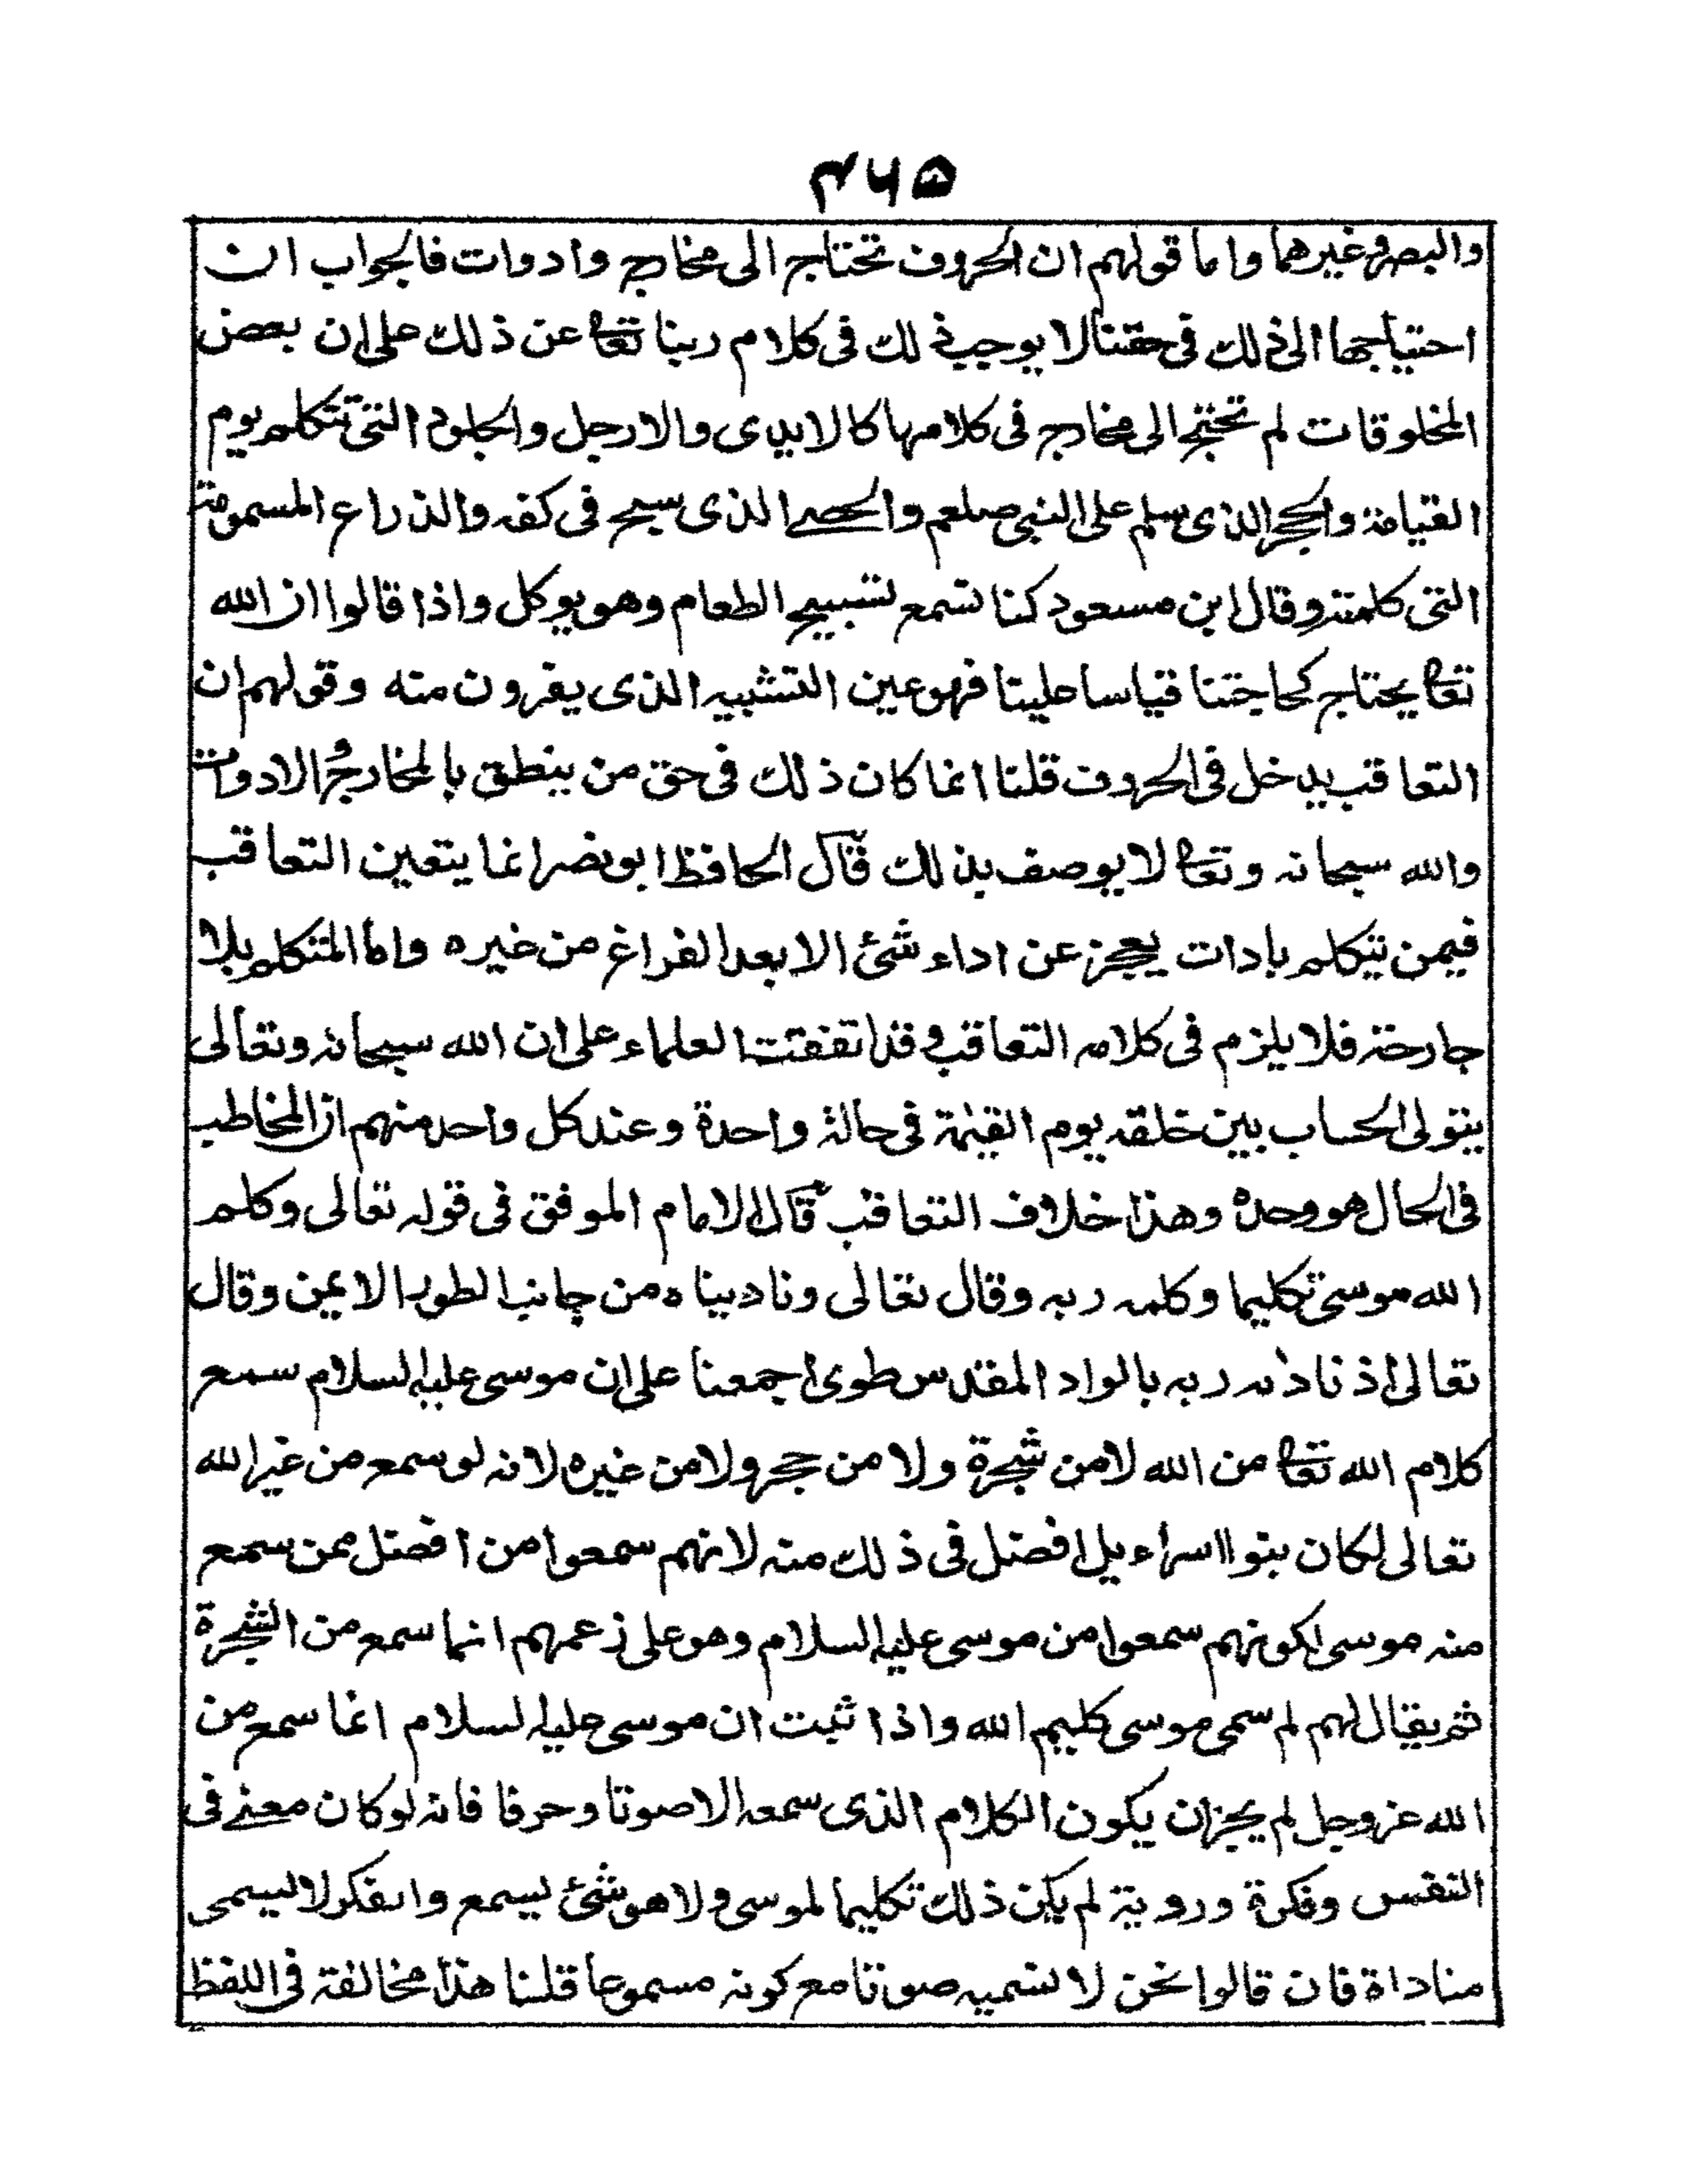 ۴۶۵
والبصر وغيرهما واما قولهم ان الحروف تحتاج الى مخارج وادوات فالجواب ان
احتياجها الى ذلك فى حقنا لا يوجب ذلك فى كلام ربنا تعا عن ذلك على ان بعض
المخلوقات لم تحتج الى مخارج فى كلامها كالايدى والارجل والجلود التى تتكلم يوم
القيامة والحجر الذى سلم على النبى صلعم والحصے الذى سبح فى كفه والذراع المسمومة
التى كلمته وقال ابن مسعود كنا نسمع تسبيح الطعام وهو يوكل واذا قالوا ان الله
تعا يحتاج كحاجتنا قياسا علينا فهو عين التشبيه الذى يفرون منه وقولهم ان
التعاقب يدخل فى الحروف قلنا انما كان ذلك فى حق من ينطق بالمخارج والادوات
والله سبحانه وتعا لا يوصف بذلك قال الحافظ ابو نصر انما يتعين التعاقب
فيمن يتكلم بادات يعجز عن اداء شئ الا بعد الفراغ من غيره واما المتكلم بلا
جارحة فلا يلزم فى كلامه التعاقب وقد اتفقت العلماء على ان الله سبحانه وتعالى
يتولى الحساب بين خلقه يوم القيٰمة فى حالة واحدة وعند كل واحد منهم ان المخاطب
فى الحال هو وحده وهذا خلاف التعاقب قال الامام الموفق فى قوله تعالى وكلم
الله موسى تكليما وكلمه ربه وقال تعالى وناديناه من جانب الطور الايمن وقال
تعالى اذ ناداه ربه بالواد المقدس طوى اجمعنا على ان موسى عليه السلام سمع
كلام الله تعا من الله لا من شجرة ولا من حجر ولا من غيره لانه لو سمع من غير الله
تعالى لكان بنو ااسراءيل افضل فى ذلك منه لانهم سمعوا من افضل ممن سمع
منه موسى لكونهم سمعوا من موسى عليه السلام وهو على زعمهم انما سمع من الشجرة
ثم يقال لهم لم سمى موسى كليم الله واذا ثبت ان موسى عليه السلام انما سمع من
الله عز وجل لم يجز ان يكون الكلام الذى سمعه الا صوتا وحرفا فانه لو كان معنے فى
النفس وفكرة وروية لم يكن ذلك تكليما لموسى ولا هو شئ يسمع والفكر لا يسمى
مناداة فان قالوا نحن لا نسميه صوتا مع كونه مسموعا قلنا هذا مخالفة فى اللفظ